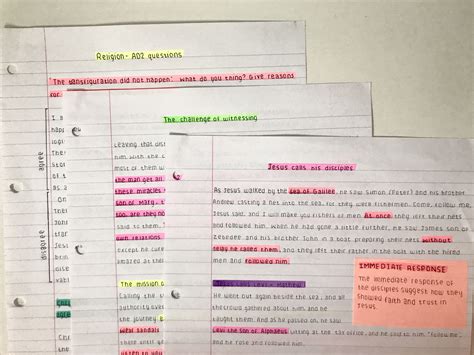 Religion - AO2 questions
"The transfiguration did not happen". what do you thing? Give reasons
for
agree
disagree
The challenge of witnessing
Leaving that dist
him with the c
most of them w
the man get all
these miracles
too, are they no
own relations
except he cure
were amazed
The mission o
Calling the
authority ou
the journey
wear sandals
these until
Jesus calls his disciples
As Jesus walked by the sea of Galilee, he saw Simon (Peter) and his brother
Andrew casting a net into the sea, for they were fishermen. Come, follow me,
Jesus said, and I will make you fishers of men. At once they left their nets
and followed him. When he had gone a little further, he saw James son of
Zebedee and his brother John in a boat preparing their nets without
delay he called them, and they left their father in the boat with the hired
men and followed him.
IMMEDIATE RESPONSE
The immediate response of
the disciples suggest how they
showed faith and trust in
Jesus.
Jesus calls Levi - Matthew
He went out again beside the sea, and all
the crowd gathered about him and he
taught them. And as he passed on he saw
Levi the son of Alphaeus sitting at the tax office, and he said to him, "follow me"
and he rose and followed him.